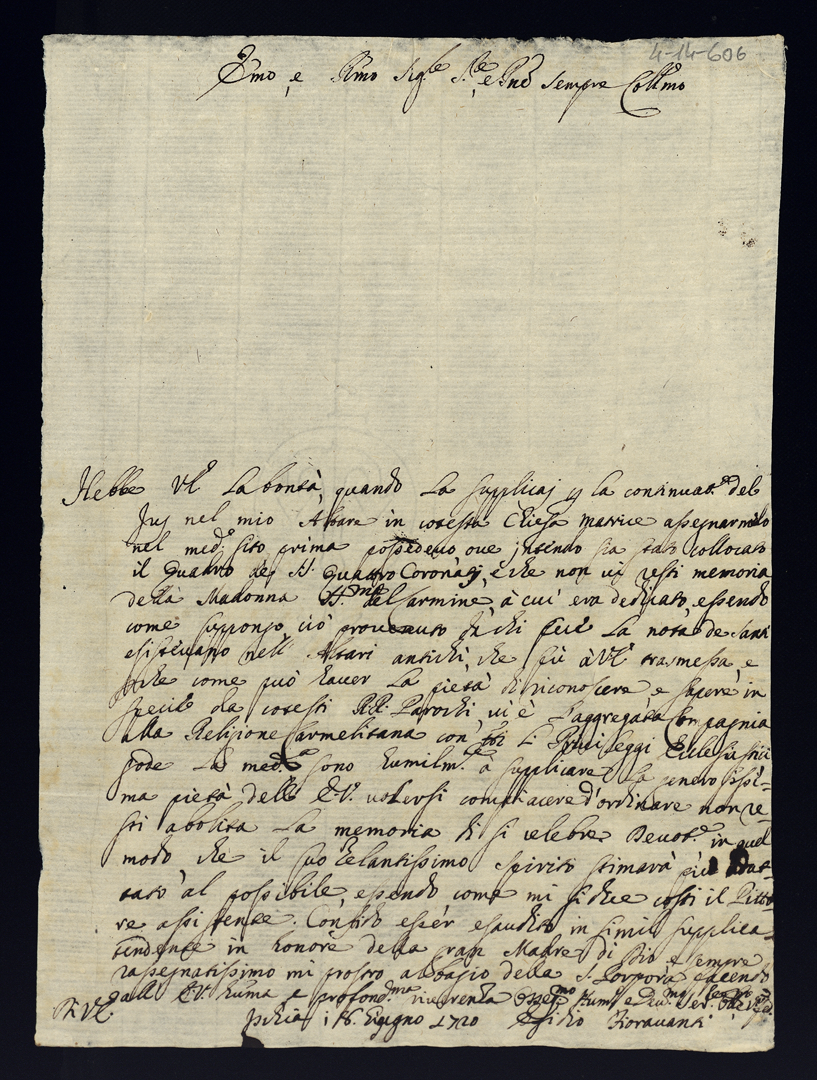 4-14-606
Emo, e Rmo Sig.re S.re e Pne sempre Coll.mo
Hebbe V.E. la bontà, quando la supplicai p la continuat.e del
Jus nel mio Altare in cotesta Chiesa Matrice assegnarmelo
nel med.o sito prima possedevo ove intendo sia stato collocato
il Quadro de SS. quattro Coronati, e che non vi resti memoria
della Madonna SS.ma del Carmine, à cui era dedicato, essendo
come suppongo ciò provenuto da chi fece la nota de Santi
esistevano nell' Altari antichi, che fù à V.E. trasmessa, e
che come può haver la pietà di riconoscere, e sapere in
specie da cotesti RR. Parochi vi è l'aggregata Compagnia
alla Religione Carmelitana con li Privileggi Ecclesiastici
gode la med.a sono humilm.te à supplicare la generosissi-
ma pietà dell' E.V. volersi compiacere d'ordinare non re-
sti abolita la memoria di sì celebre Devot.e in quel
modo che il suo Zelantissimo Spirito stimarà più adat-
tato al possibile, essendo come mi si dice costì il Pitto-
re assistente. Confido esser esaudito in simil supplica
tendente in honore della gran Madre di Dio e sempre
rassegnatissimo mi prostro al bagio della S. Porpora facendo
all' E.V. huma e profond.ma riverenza
Di V.E. Hum.o e Dev.mo Ser.re
16 Giugno 1720 Egidio Fioravanti